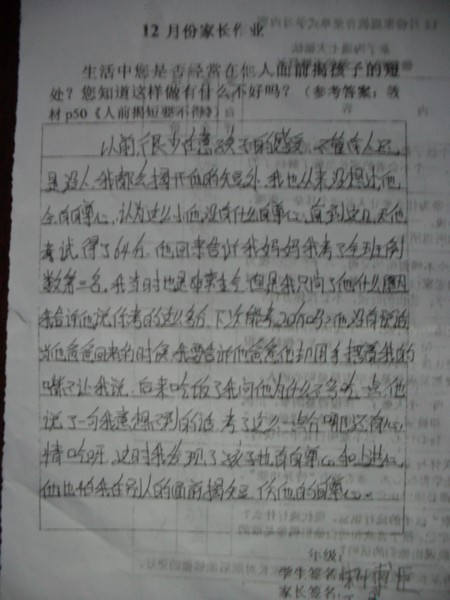 12月份家长作业
生活中您是否经常在他人面前揭孩子的短
处？您知道这样做有什么不好吗？（参考答案：教
材p50《人前揭短要不得》）
以前很少在意孩子的感受，不管有人还
是没人，我都会揭开他的短处，我也从来没想过他
会有自尊心，认为这么小他没有什么自尊心，直到这次他
考试得了64分，他回来告诉我妈妈我考了全班倒
数第二名，我当时也是非常生气但是我只问了他什么原因
我告诉他说你考的这么多分，下次能考 他没有说话
当他爸爸回来的时候我要告诉他爸爸他却用手捂着我的
嘴不让我说，后来吃饭了我问他为什么不多吃一点，他
说了一句我意想不到的话，考了这么一点分哪还有心
情吃呀，这时我发现了孩子也有自尊心和上进心，
他也怕我在别人的面前揭短，伤他的自尊心。
年级：
学生签名：
家长签名：